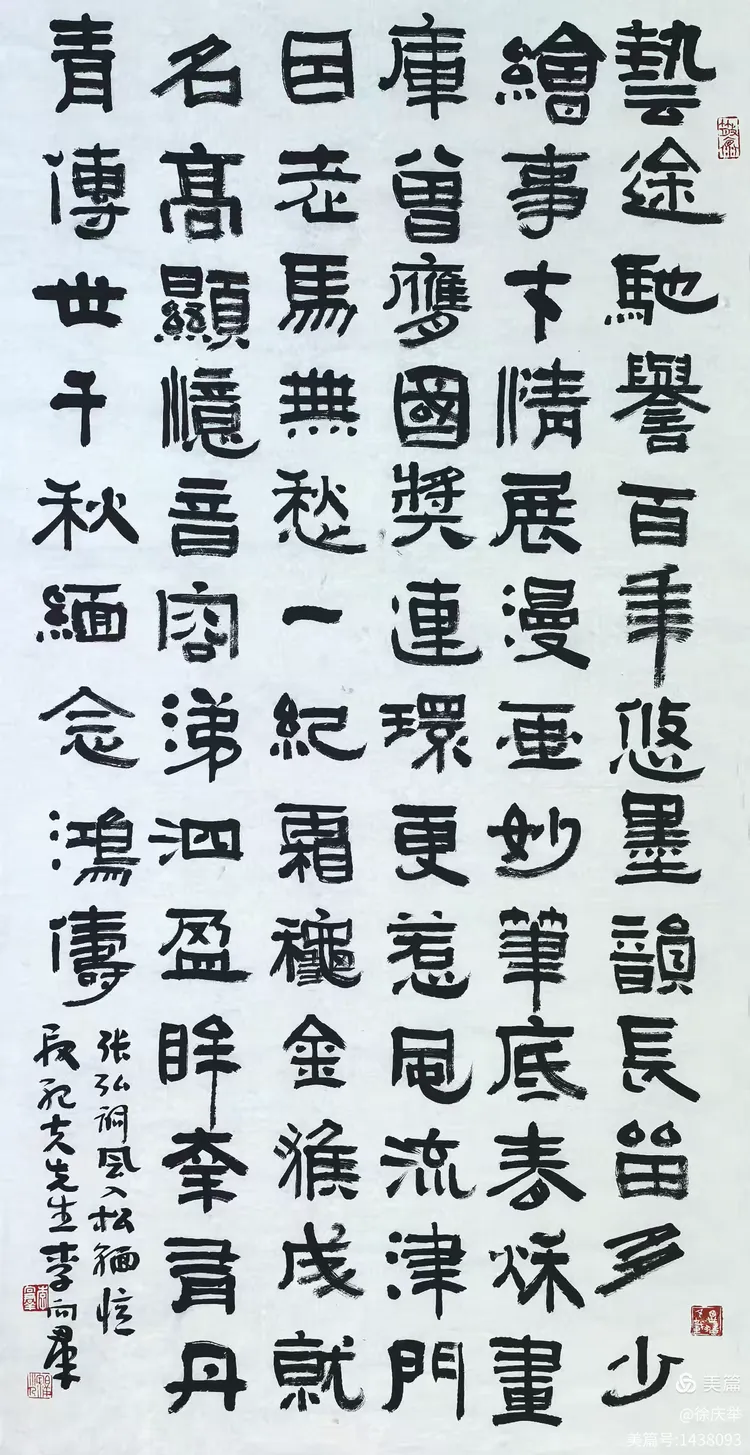 藝途馳譽百年悠墨韻長留多少
繪事才情展漫画妙筆底春秋畫
庫曾膺國獎連環更惹風流津門
田老馬無愁一紀霜龝金猴成就
名高顯憶音容涕泗盈眸丹
青傳世千秋緬念鴻儔
张弘词风入松缅忆
段纪夫先生李向群
美篇
@徐庆举
美篇号:1438093